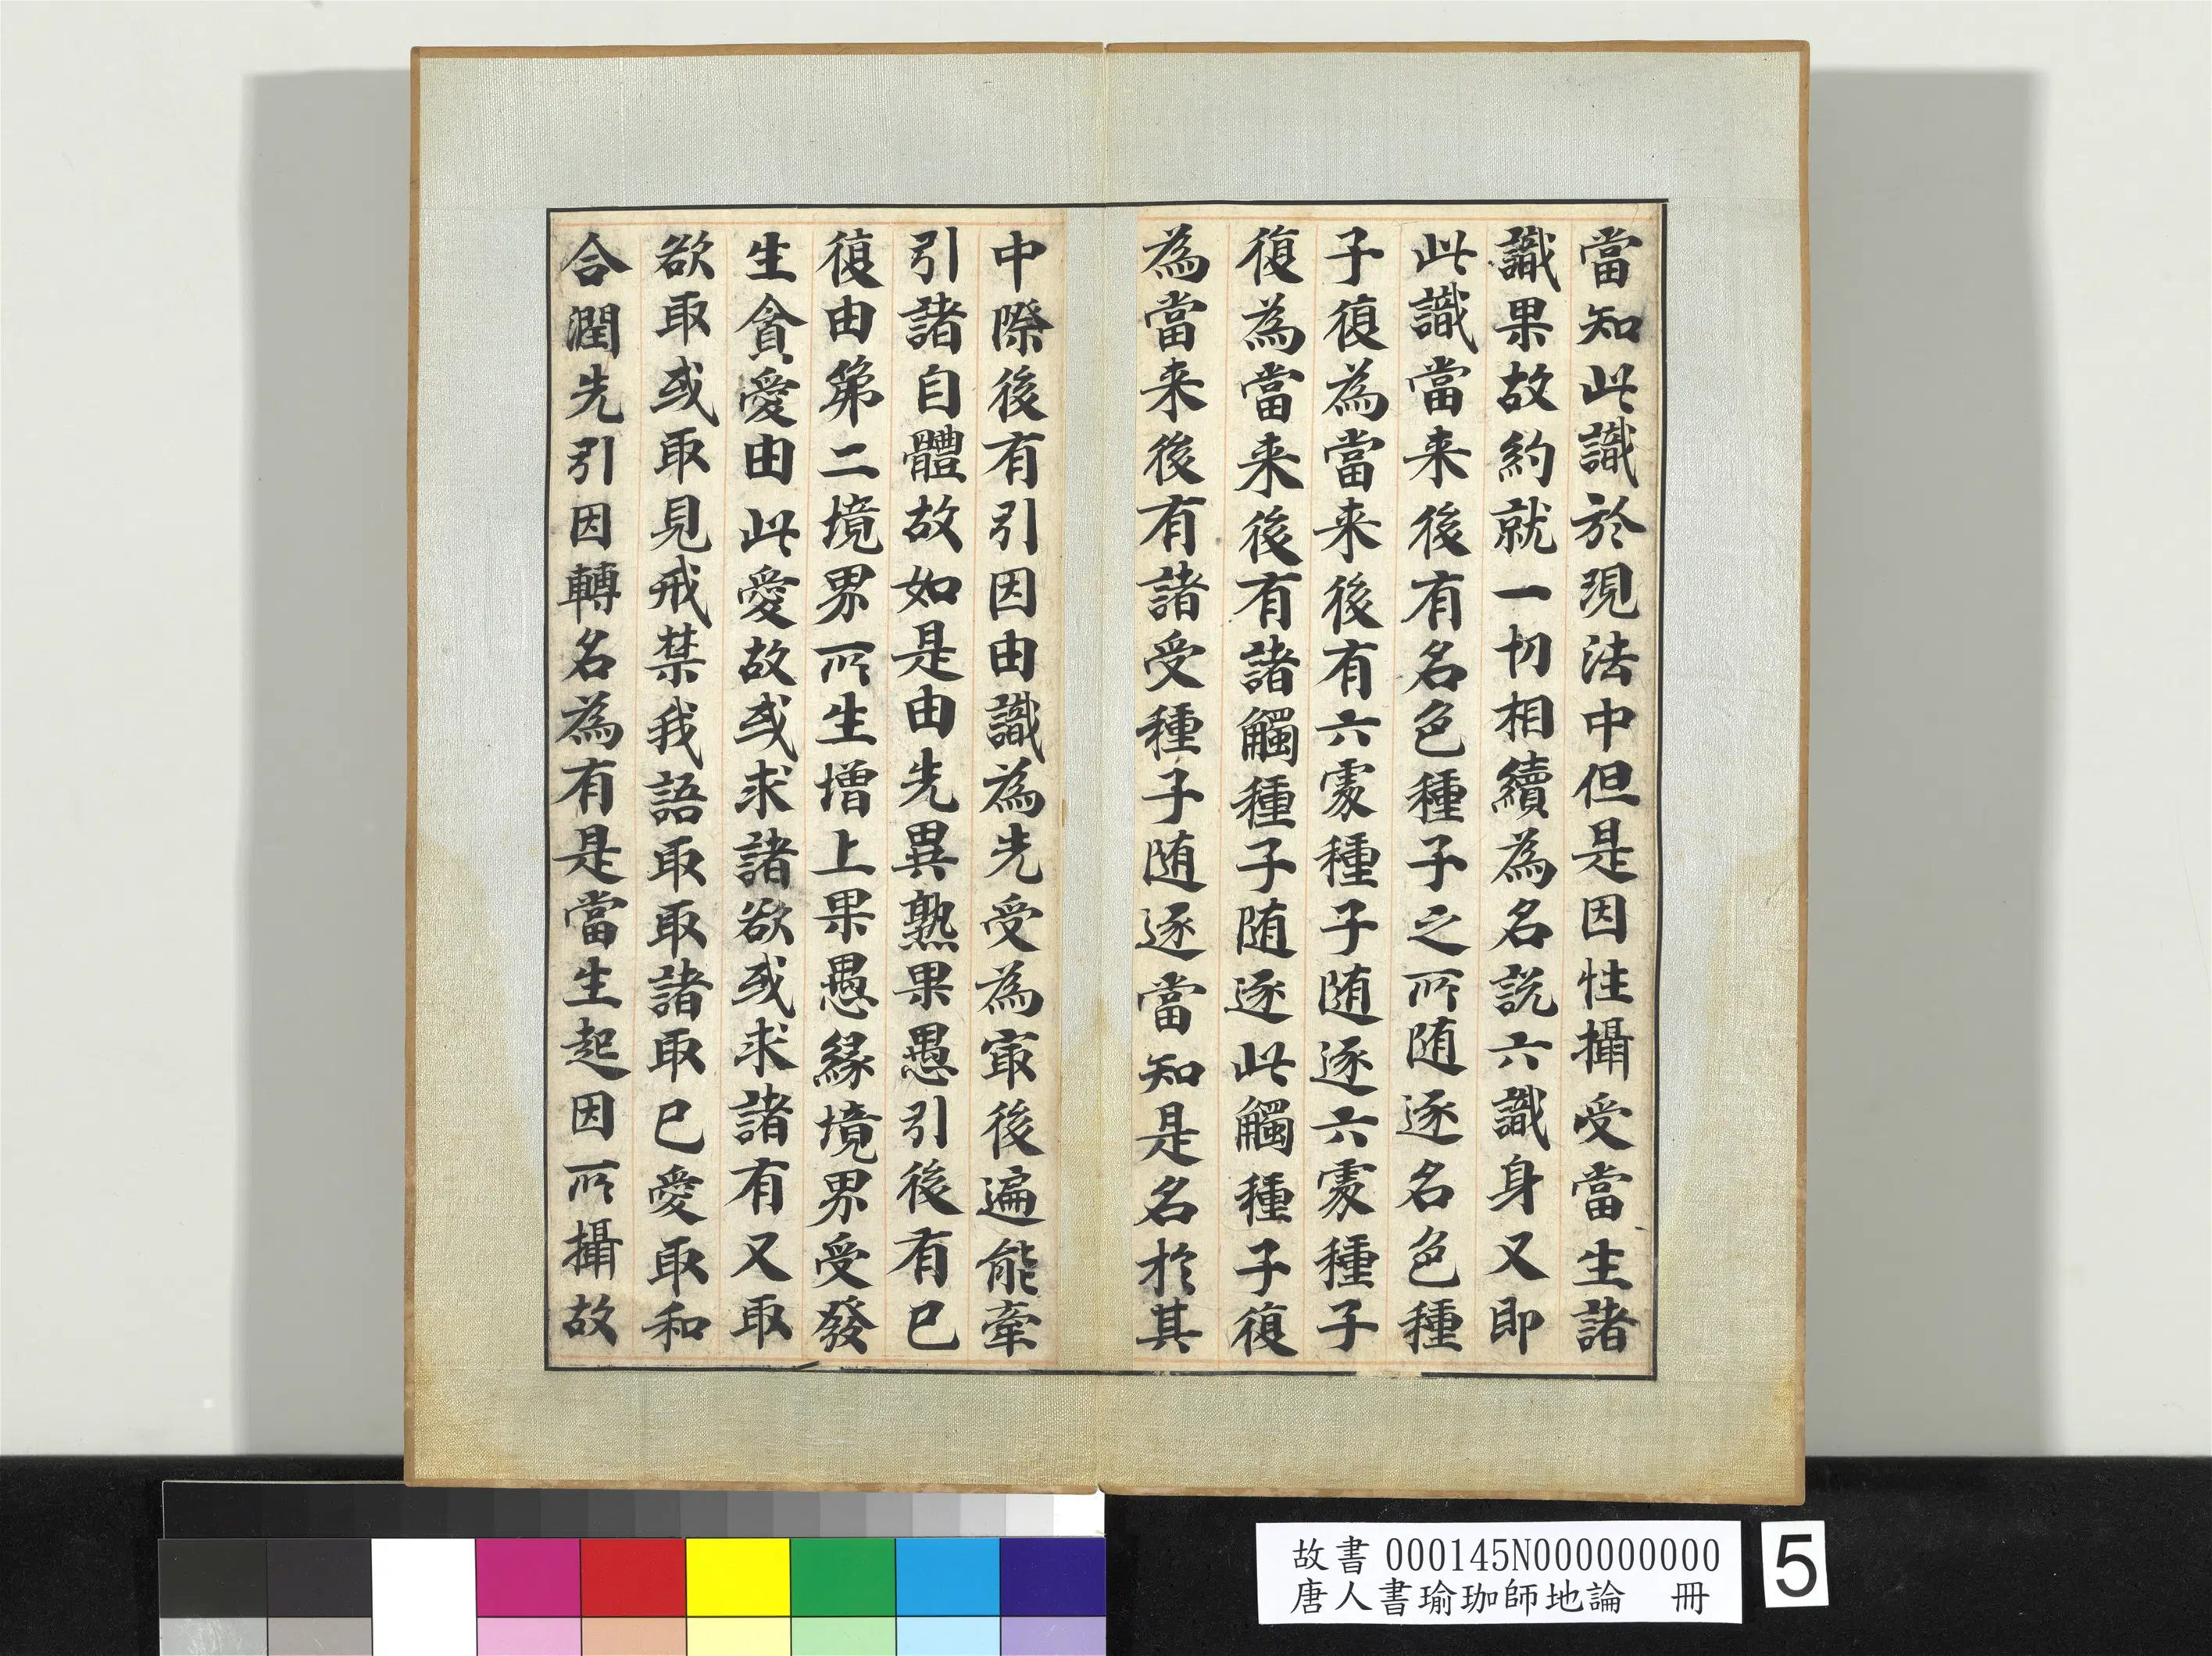 當知此識於現法中但是因性攝受當生諸
識果故約就一切相續為名説六識身又即
此識當来後有名色種子之所随逐名色種
子復為當来後有六處種子随逐六處種子
復為當来後有諸觸種子随逐此觸種子復
為當来後有諸受種子随逐當知是名於其
中際後有引因由識為先受為冣後遍能牽
引諸自體故如是由先異熟果愚引後有已
復由第二境界所生增上果愚緣境界受發
生貪愛由此愛故或求諸欲或求諸有又取
欲取或取見戒禁我語取取諸取已愛取和
合潤先引因轉名為有是當生起因所攝故
故書 000145N000000000
唐人書瑜珈師地論 冊
5